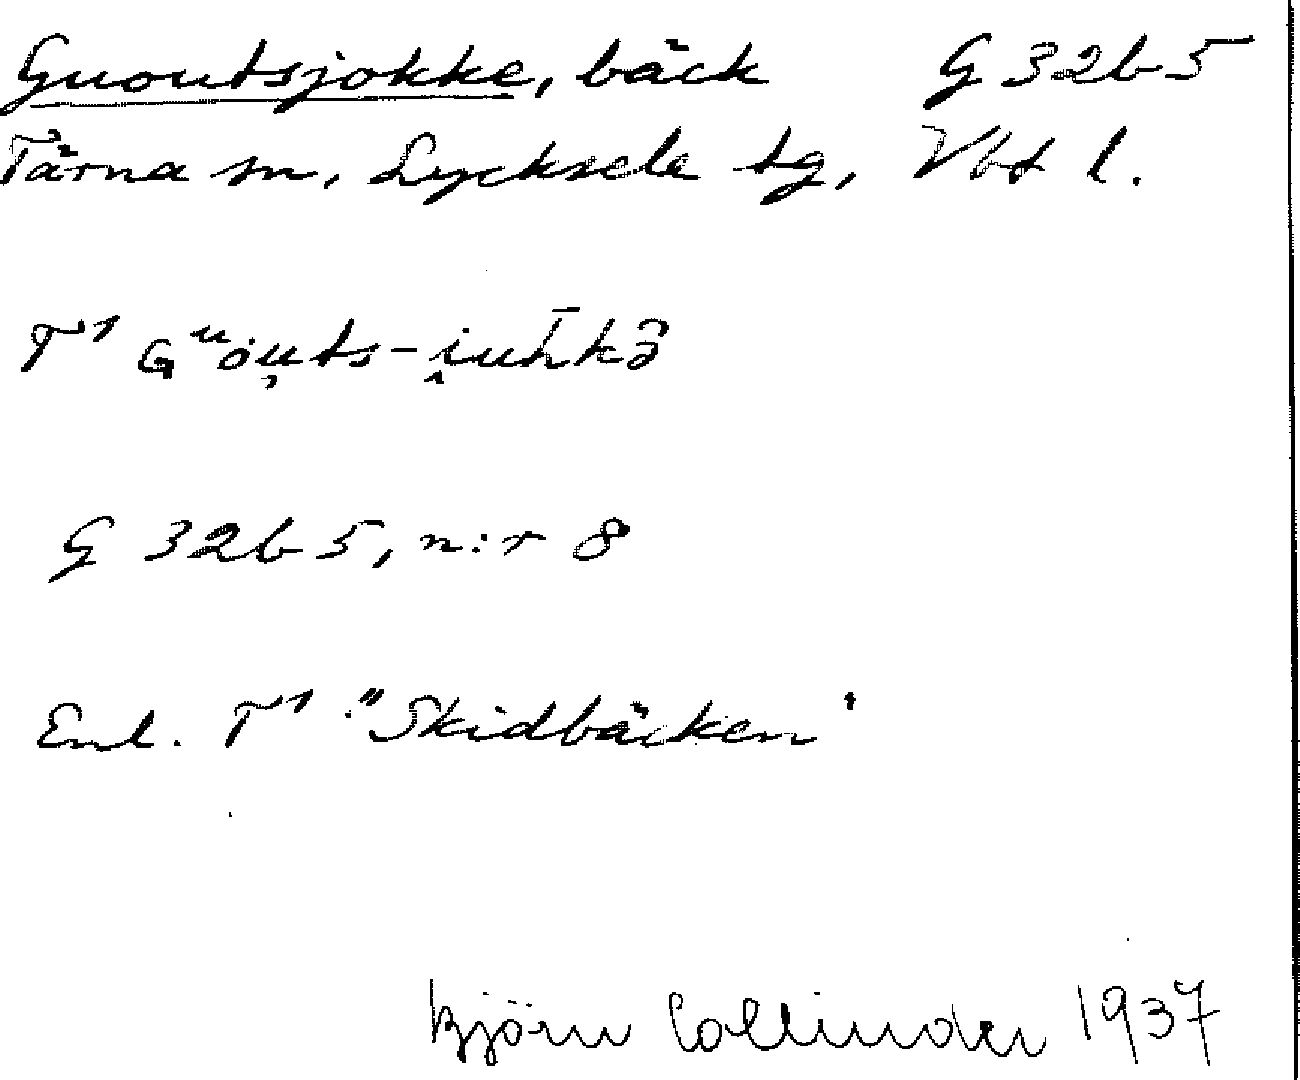 Guoutsjokke, bäck G 32b5
Tärna sn, Lycksele tg, Vbt l.
T¹ Gᵘou̯ts-i̯uh̄kə̂
G 32b5, n:r 8
Enl. T¹ "Skidbäcken"
Björn Collinder 1937